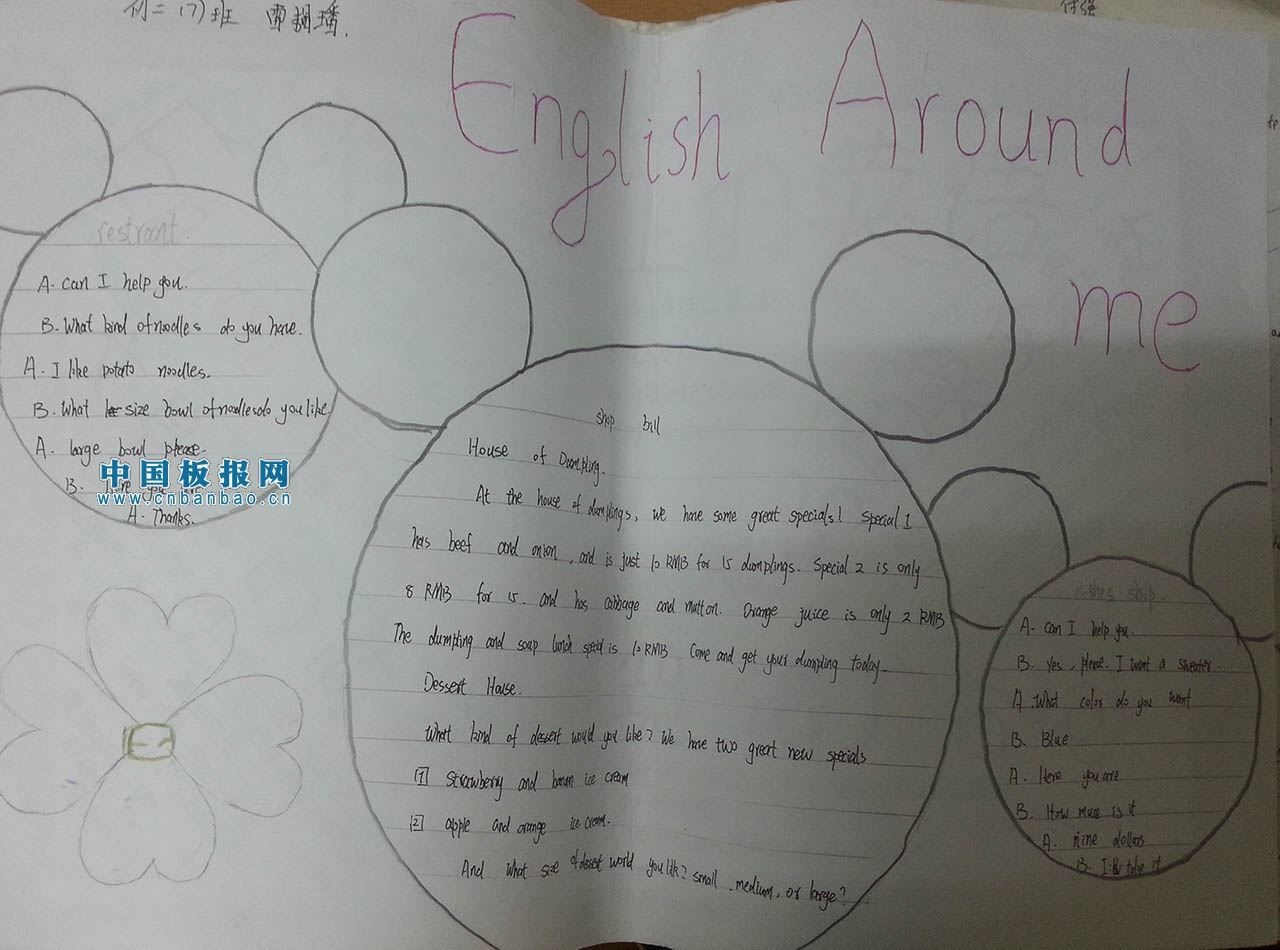 初二 (7) 班
English Around
me
restront.
A. can I help you.
B. What kind of noodles do you have.
A. I like potato noodles.
B. What size bowl of noodles do you like.
A. large bowl please.
B. Here you are
A. Thanks.
中国板报网
www.cnbanbao.cn
shop bill
House of Dumpling.
At the house of dumplings, we have some great specials! Special 1
has beef and onion, and is just 10 RMB for 15 dumplings. Special 2 is only
8 RMB for 15. and has cabbage and mutton. Orange juice is only 2 RMB
The dumpling and soup lunch special is 10 RMB. Come and get your dumpling today.
Dessert House.
What kind of dessert would you like? We have two great new specials
1 strawberry and banan ice cream
2 apple and orange ice cream.
And what size of dessert world you like? small, medium, or large?
shop.
A. can I help you.
B. yes, please. I want a sweater.
A. What color do you want
B. Blue
A. Here you are.
B. How much is it
A. nine dollars
B. I'll take it